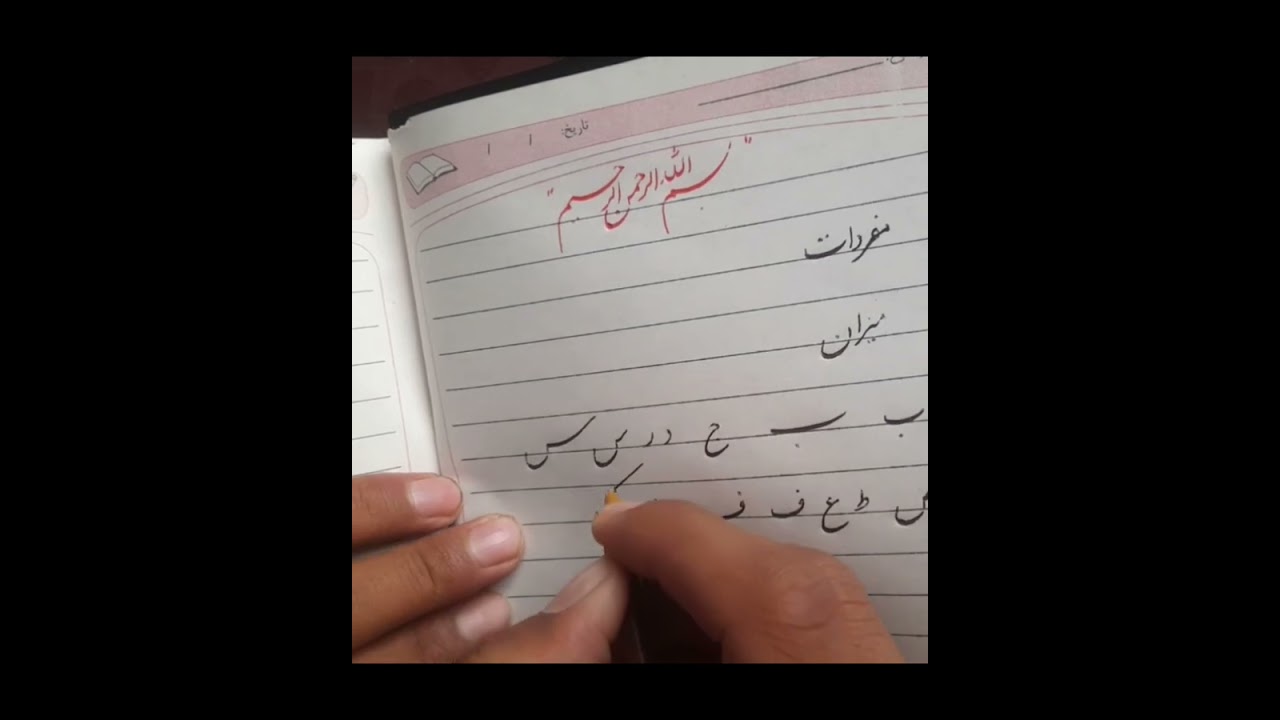 تاریخ: / /
"بسم الله الرحمن الرحیم"
مفردات
میزان
ب ب ح د ر س س
ط ع ف ف